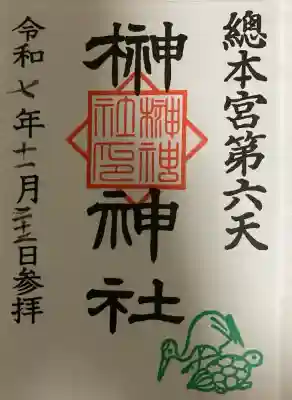 總本宮第六天
榊神社
榊神
社印
令和七年十一月二十三日参拝